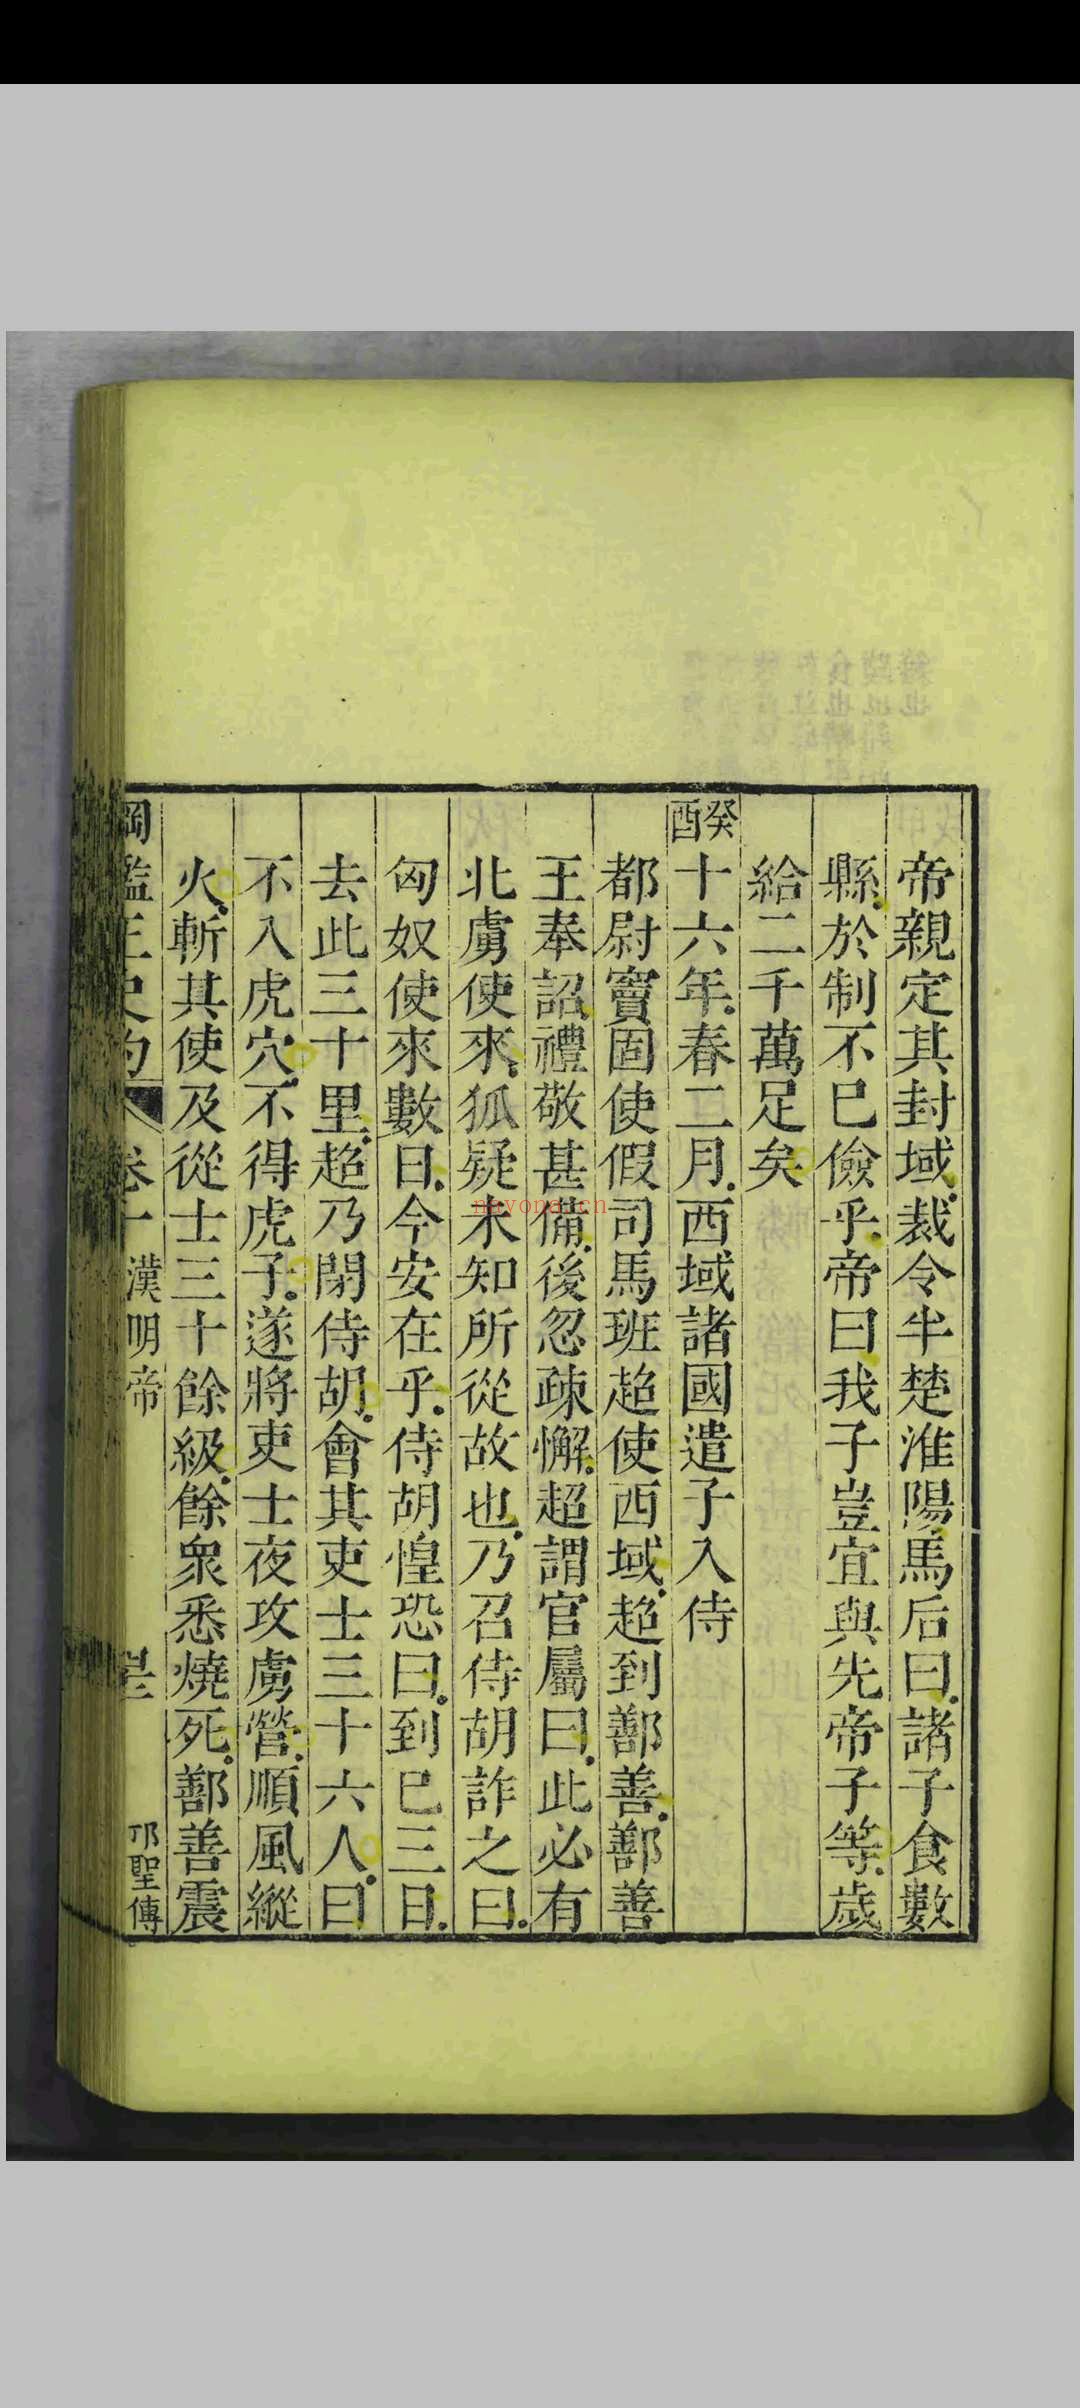 帝親定其封域裁令半楚淮陽馬后曰諸子食數
縣於制不已儉乎帝曰我子豈宜與先帝子等歲
給二千萬足矣
癸酉
十六年春二月西域諸國遣子入侍
都尉竇固使假司馬班超使西域超到鄯善鄯善
王奉詔禮敬甚備後忽疎懈超謂官屬曰此必有
北虜使來狐疑未知所從故也乃召侍胡詐之曰
匈奴使來數日今安在乎侍胡惶恐曰到已三日
去此三十里超乃閉侍胡會其吏士三十六人曰
不入虎穴不得虎子遂將吏士夜攻虜營順風縱
火斬其使及從士三十餘級餘衆悉燒死鄯善震
綱鑑正史約 卷十 漢明帝 邛聖傳
nayona.cn